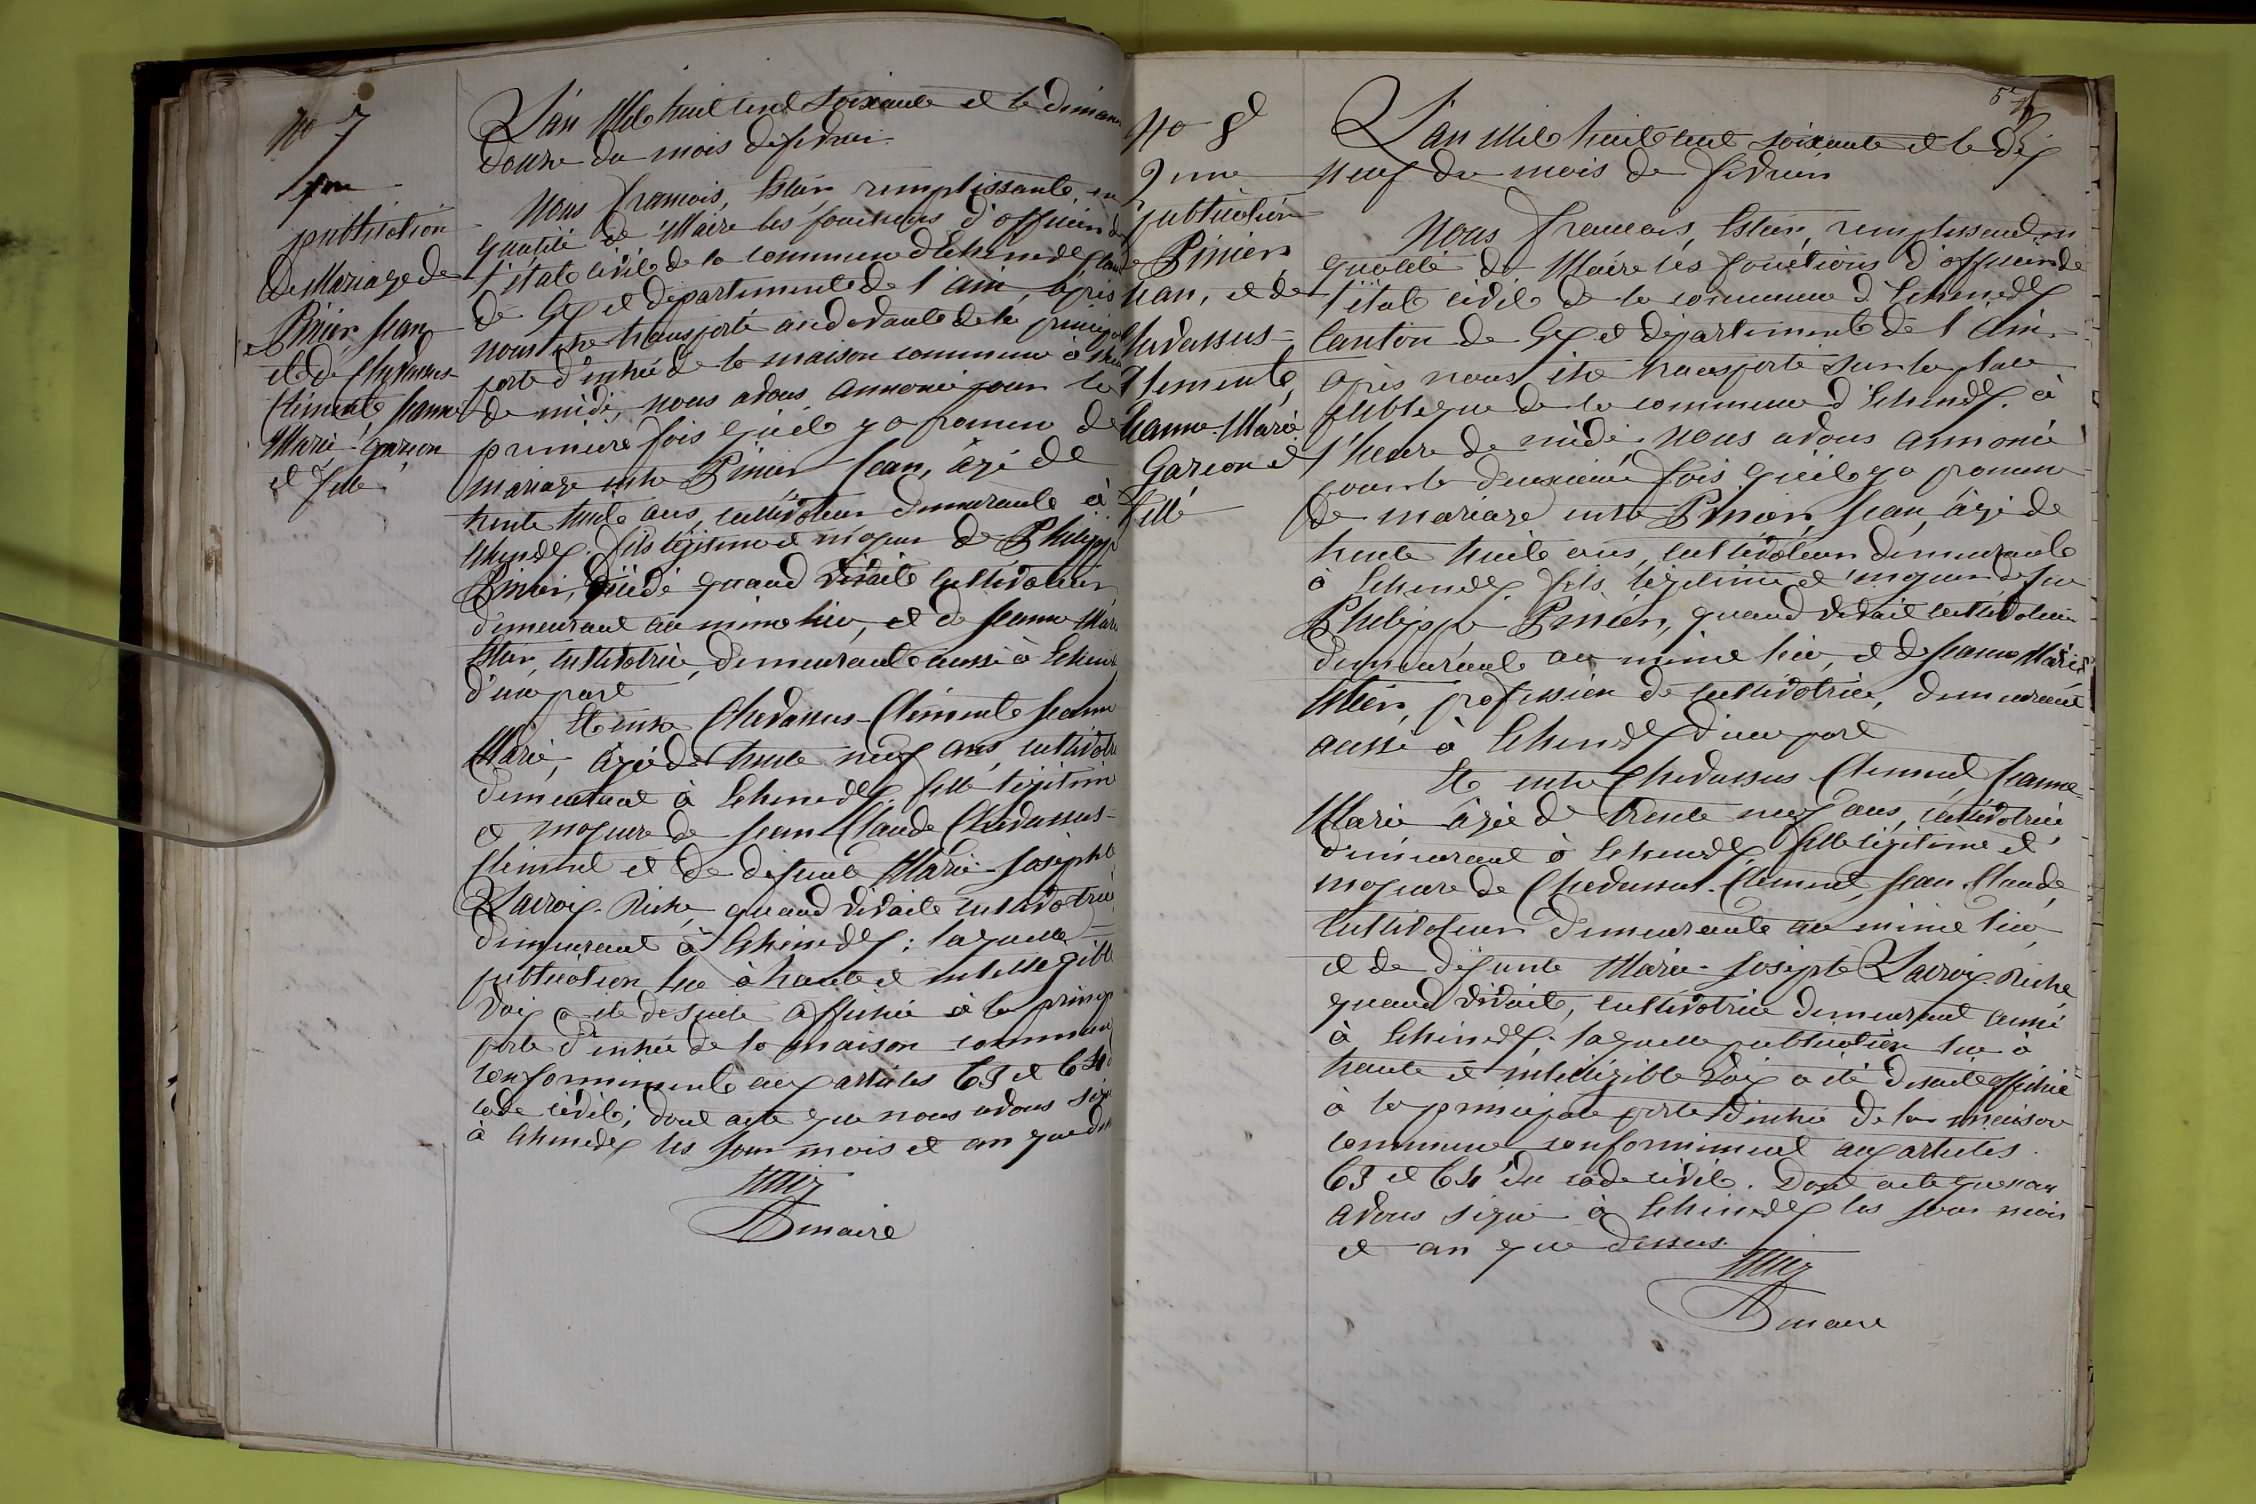 No 7
1ère
publication
de Mariage de
Pinier Jean
et de Chevassus-
Clément, Jeanne
Marie garçon
et fille
L'an Mil huit cent soixante et le diman
douze du mois de fevrier.
Nous François, Estier remplissante, en
qualité de Maire les fonctions d'officier de
l'état civil de la commune d'Echenevex
de Gex et département de l'ain, après
nous etre transporté au devant de la principale
porte d'entrée de la maison commune à
de midi, nous avons annoncé pour la
premiere fois qu'il y a promesse de
mariage entre Pinier Jean, âgé de
trente huit ans, cultivateur demeurante à
Echenevex fils légitime et majeur de Philippe
Pinier, décédé quand vivait cultivateur
demeurant au même lieu, et de Jeanne Marie
Estier, cultivatrice, demeurante aussi à Echenevex
d'une part
Et entre Chevassus-Clémente Jeanne
Marie, âgée de trente neuf ans, cultivatrice
demeurant à Echenevex fille légitime
et majeure de Jean Claude Chevassus-
Clément et de défunte Marie-Josephte
Lacroix-Riche, quand vivait cultivatrice
demeurant à Echenevex; laquelle
publication lue à haute et intelligible
voix a été de suite affichée à la princip
porte d'entrée de la maison commune
conformément aux articles 63 et 64 d
code civil; dont acte que nous avons signé
à Echenevex les jour mois et an que dess
Maire
No 8
2ème
publication
de Pinier
Jean, et de
Chevassus-
Clemente,
Jeanne-Marie
Garçon et
fille
L'an Mil huit cent soixante et le dix
neuf du mois de fevrier
Nous Francois, Estier, remplissand en
qualité de Maire les fonctions d'officier de
l'état civil de la commune d'Echenevex
Canton de Gex et département de l'Ain.
après nous etre transporté sur la place
publique de la commune d'Echenevex. à
l'heure de midi, nous avons annoncé
pour la deuxième fois qu'il y a promesse
de mariage entre Pinier, Jean, âgé de
trente huit ans, cultivateur demeurante
à Echenevex fils légitime et majeur de feu
Philippe Pinier, quand vivait cultivateur
demeurante au même lieu, et de Jeanne Marie
Estier, profession de cultivatrice, demeurant
aussi à Echenevex d'une part
Et entre Chevassus-Clement, Jeanne-
Marie âgée de trente neuf ans, cultivatrice
demeurant à Echenevex fille légitime et
majeure de Chevassus-Clement, Jean Claude,
cultivateur demeurante au même lieu,
et de défunte Marie-Josephte Lacroix-Riche
quand vivait, cultivatrice demeurant aussi
à Echenevex. laquelle publication lue à
haute et intelligible voix a été de suite affichée
à la principale porte d'entrée de la maison
commune conformément aux articles
63 et 64 du code civil. Dont acte que nous
avons signé à Echenevex les jour mois
et an que dessus.
Maire